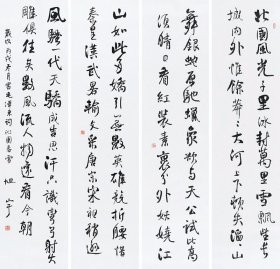 北國風光千里冰封萬里雪飄望長
城内外惟餘莽莽大河上下頓失滔滔山
舞銀蛇原馳蠟象欲與天公試比高
須晴日看紅裝素裹分外妖嬈江
山如此多嬌引無數英雄競折腰惜
秦皇漢武略輸文采唐宗宋祖稍遜
風騷一代天驕成吉思汗只識彎弓射大
雕俱往矣數風流人物還看今朝
冬月書毛澤東詞沁園春雪 旭宇